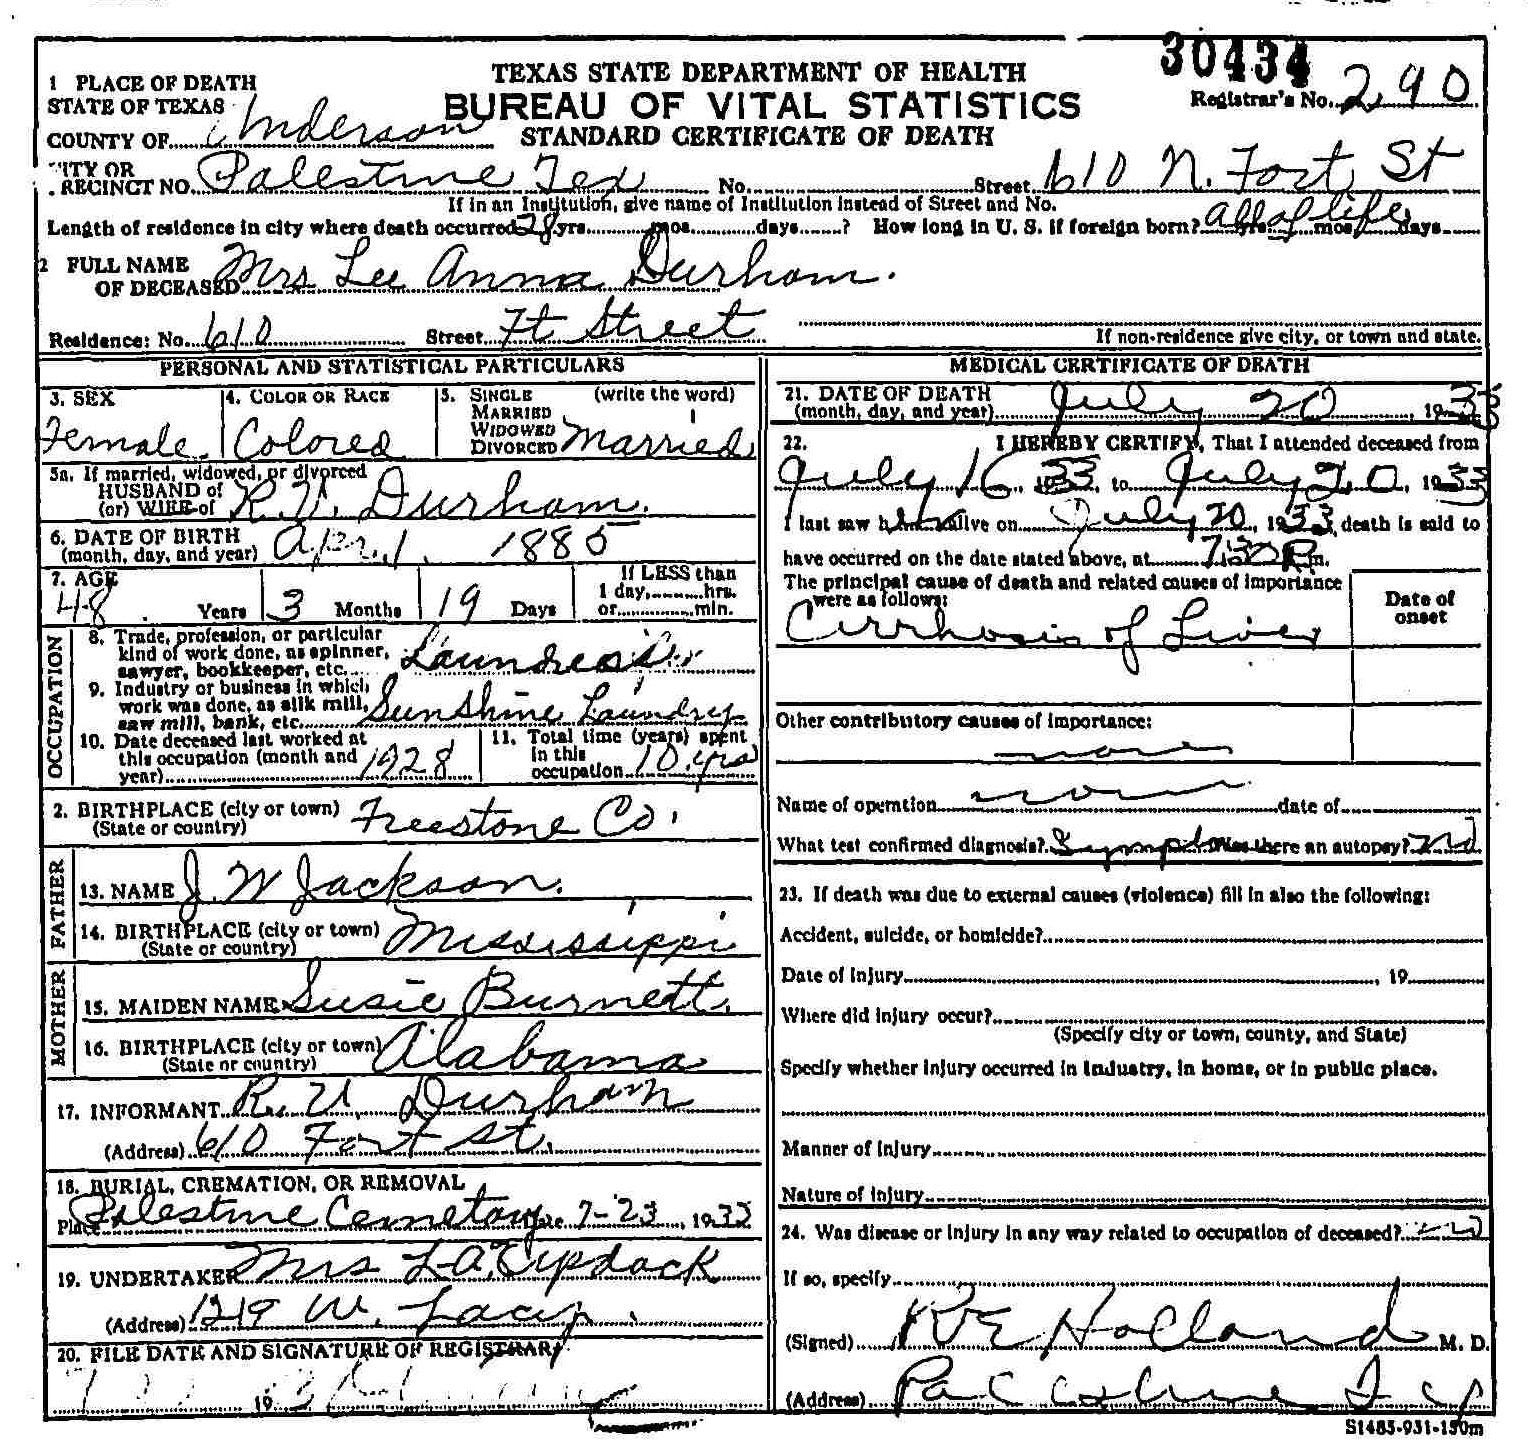 30434
TEXAS STATE DEPARTMENT OF HEALTH
BUREAU OF VITAL STATISTICS
STANDARD CERTIFICATE OF DEATH
Registrar's No. 290
1 PLACE OF DEATH
STATE OF TEXAS
COUNTY OF Anderson
CITY OR
PRECINCT NO. Palestine Tex No. Street 610 N. Fort St
If in an Institution, give name of Institution instead of Street and No.
Length of residence in city where death occurred 28 yrs. mos. days ? How long in U. S. if foreign born? all of life yrs. mos. days
2 FULL NAME
OF DECEASED Mrs Lee Anna Durham.
Residence: No. 610 Street Ft Street
If non-residence give city, or town and state.
PERSONAL AND STATISTICAL PARTICULARS
3. SEX
Female
4. COLOR OR RACE
Colored
5. SINGLE (write the word)
MARRIED
WIDOWED
DIVORCED Married
5a. If married, widowed, or divorced
HUSBAND of
(or) WIFE of R. U. Durham.
6. DATE OF BIRTH
(month, day, and year) Apr. 1. 1885
7. AGE
48 Years 3 Months 19 Days
If LESS than
1 day, hrs.
or min.
OCCUPATION
8. Trade, profession, or particular
kind of work done, as spinner,
sawyer, bookkeeper, etc. Laundress
9. Industry or business in which
work was done, as silk mill,
saw mill, bank, etc. Sunshine Laundry
10. Date deceased last worked at
this occupation (month and
year) 1928
11. Total time (years) spent
in this
occupation 10 yrs
2. BIRTHPLACE (city or town)
(State or country) Freestone Co.
FATHER
13. NAME J. W Jackson.
14. BIRTHPLACE (city or town)
(State or country) Mississippi
MOTHER
15. MAIDEN NAME Susie Burnett.
16. BIRTHPLACE (city or town)
(State or country) Alabama
17. INFORMANT R. U. Durham
(Address) 610 Fort St.
18. BURIAL, CREMATION, OR REMOVAL
Place Palestine Cemetary Date 7-23, 1933
19. UNDERTAKER Mrs L. A.
(Address) 1219 W. Lacy.
20. FILE DATE AND SIGNATURE OF REGISTRAR
19
MEDICAL CERTIFICATE OF DEATH
21. DATE OF DEATH
(month, day, and year) July 20, 1933
22. I HEREBY CERTIFY, That I attended deceased from
July 16, 1933, to July 20, 1933
I last saw her alive on July 20, 1933, death is said to
have occurred on the date stated above, at 7:30 P.m.
The principal cause of death and related causes of importance
were as follows:
Date of
onset
Cirrhosis of Liver
Other contributory causes of importance:
none
Name of operation none date of
What test confirmed diagnosis? Was there an autopsy? no
23. If death was due to external causes (violence) fill in also the following:
Accident, suicide, or homicide?
Date of injury , 19
Where did injury occur?
(Specify city or town, county, and State)
Specify whether injury occurred in industry, in home, or in public place.
Manner of injury
Nature of injury
24. Was disease or injury in any way related to occupation of deceased? no
If so, specify
(Signed) R E Holland M. D.
(Address) Palestine
S1485-931-150m